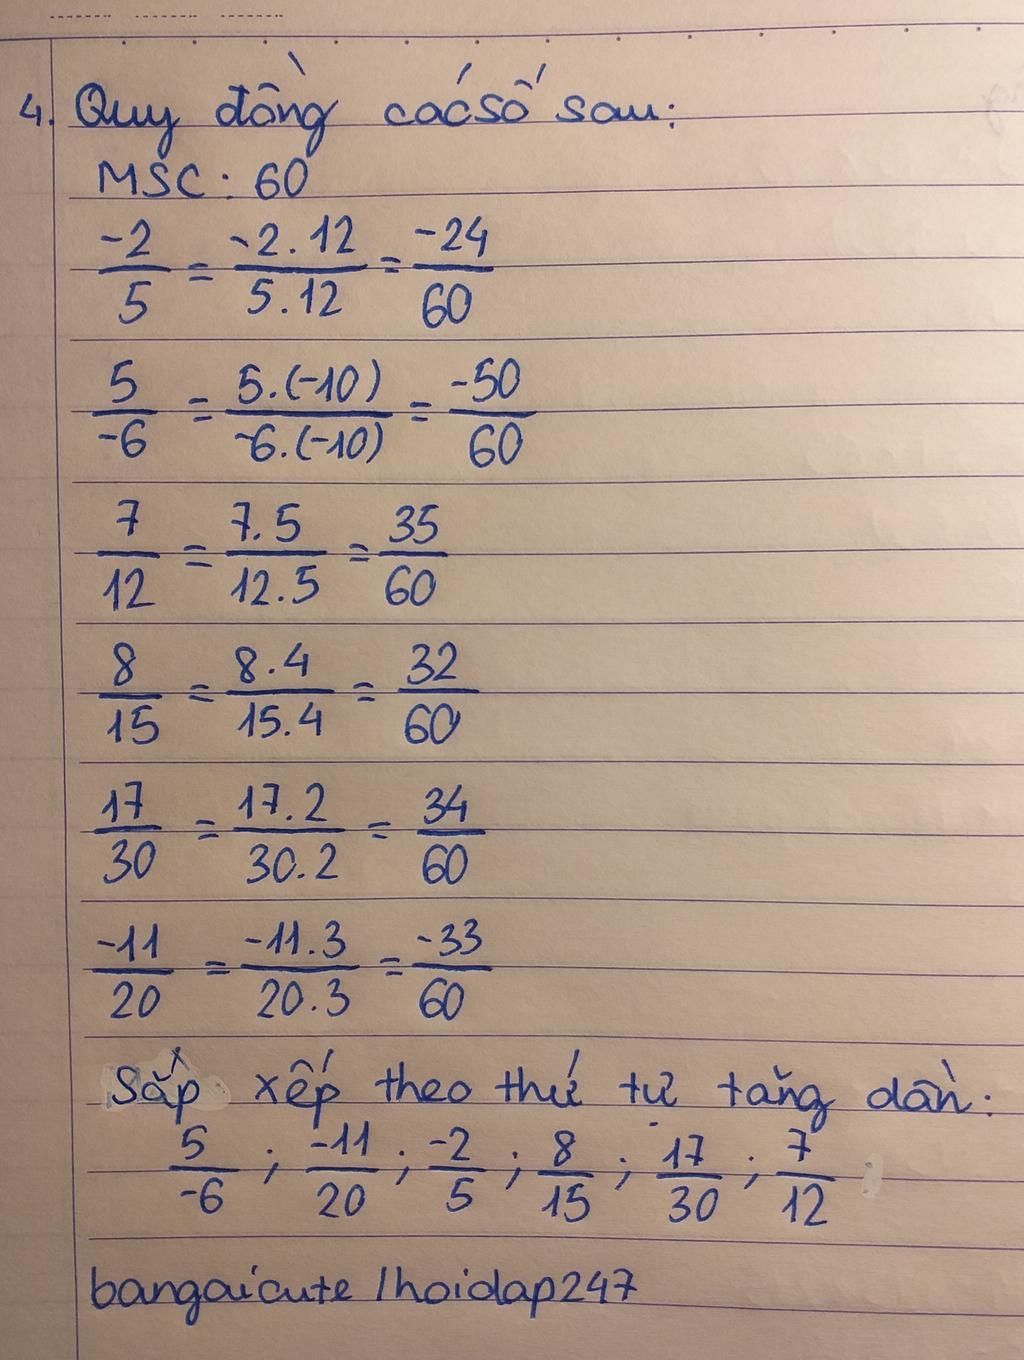 4. Quy đồng các số sau:
MSC: 60
-2/5 = -2.12/5.12 = -24/60
5/-6 = 5.(-10)/-6.(-10) = -50/60
7/12 = 7.5/12.5 = 35/60
8/15 = 8.4/15.4 = 32/60
17/30 = 17.2/30.2 = 34/60
-11/20 = -11.3/20.3 = -33/60
Sắp xếp theo thứ tự tăng dần:
5/-6 ; -11/20 ; -2/5 ; 8/15 ; 17/30 ; 7/12
bangaicute/hoidap247